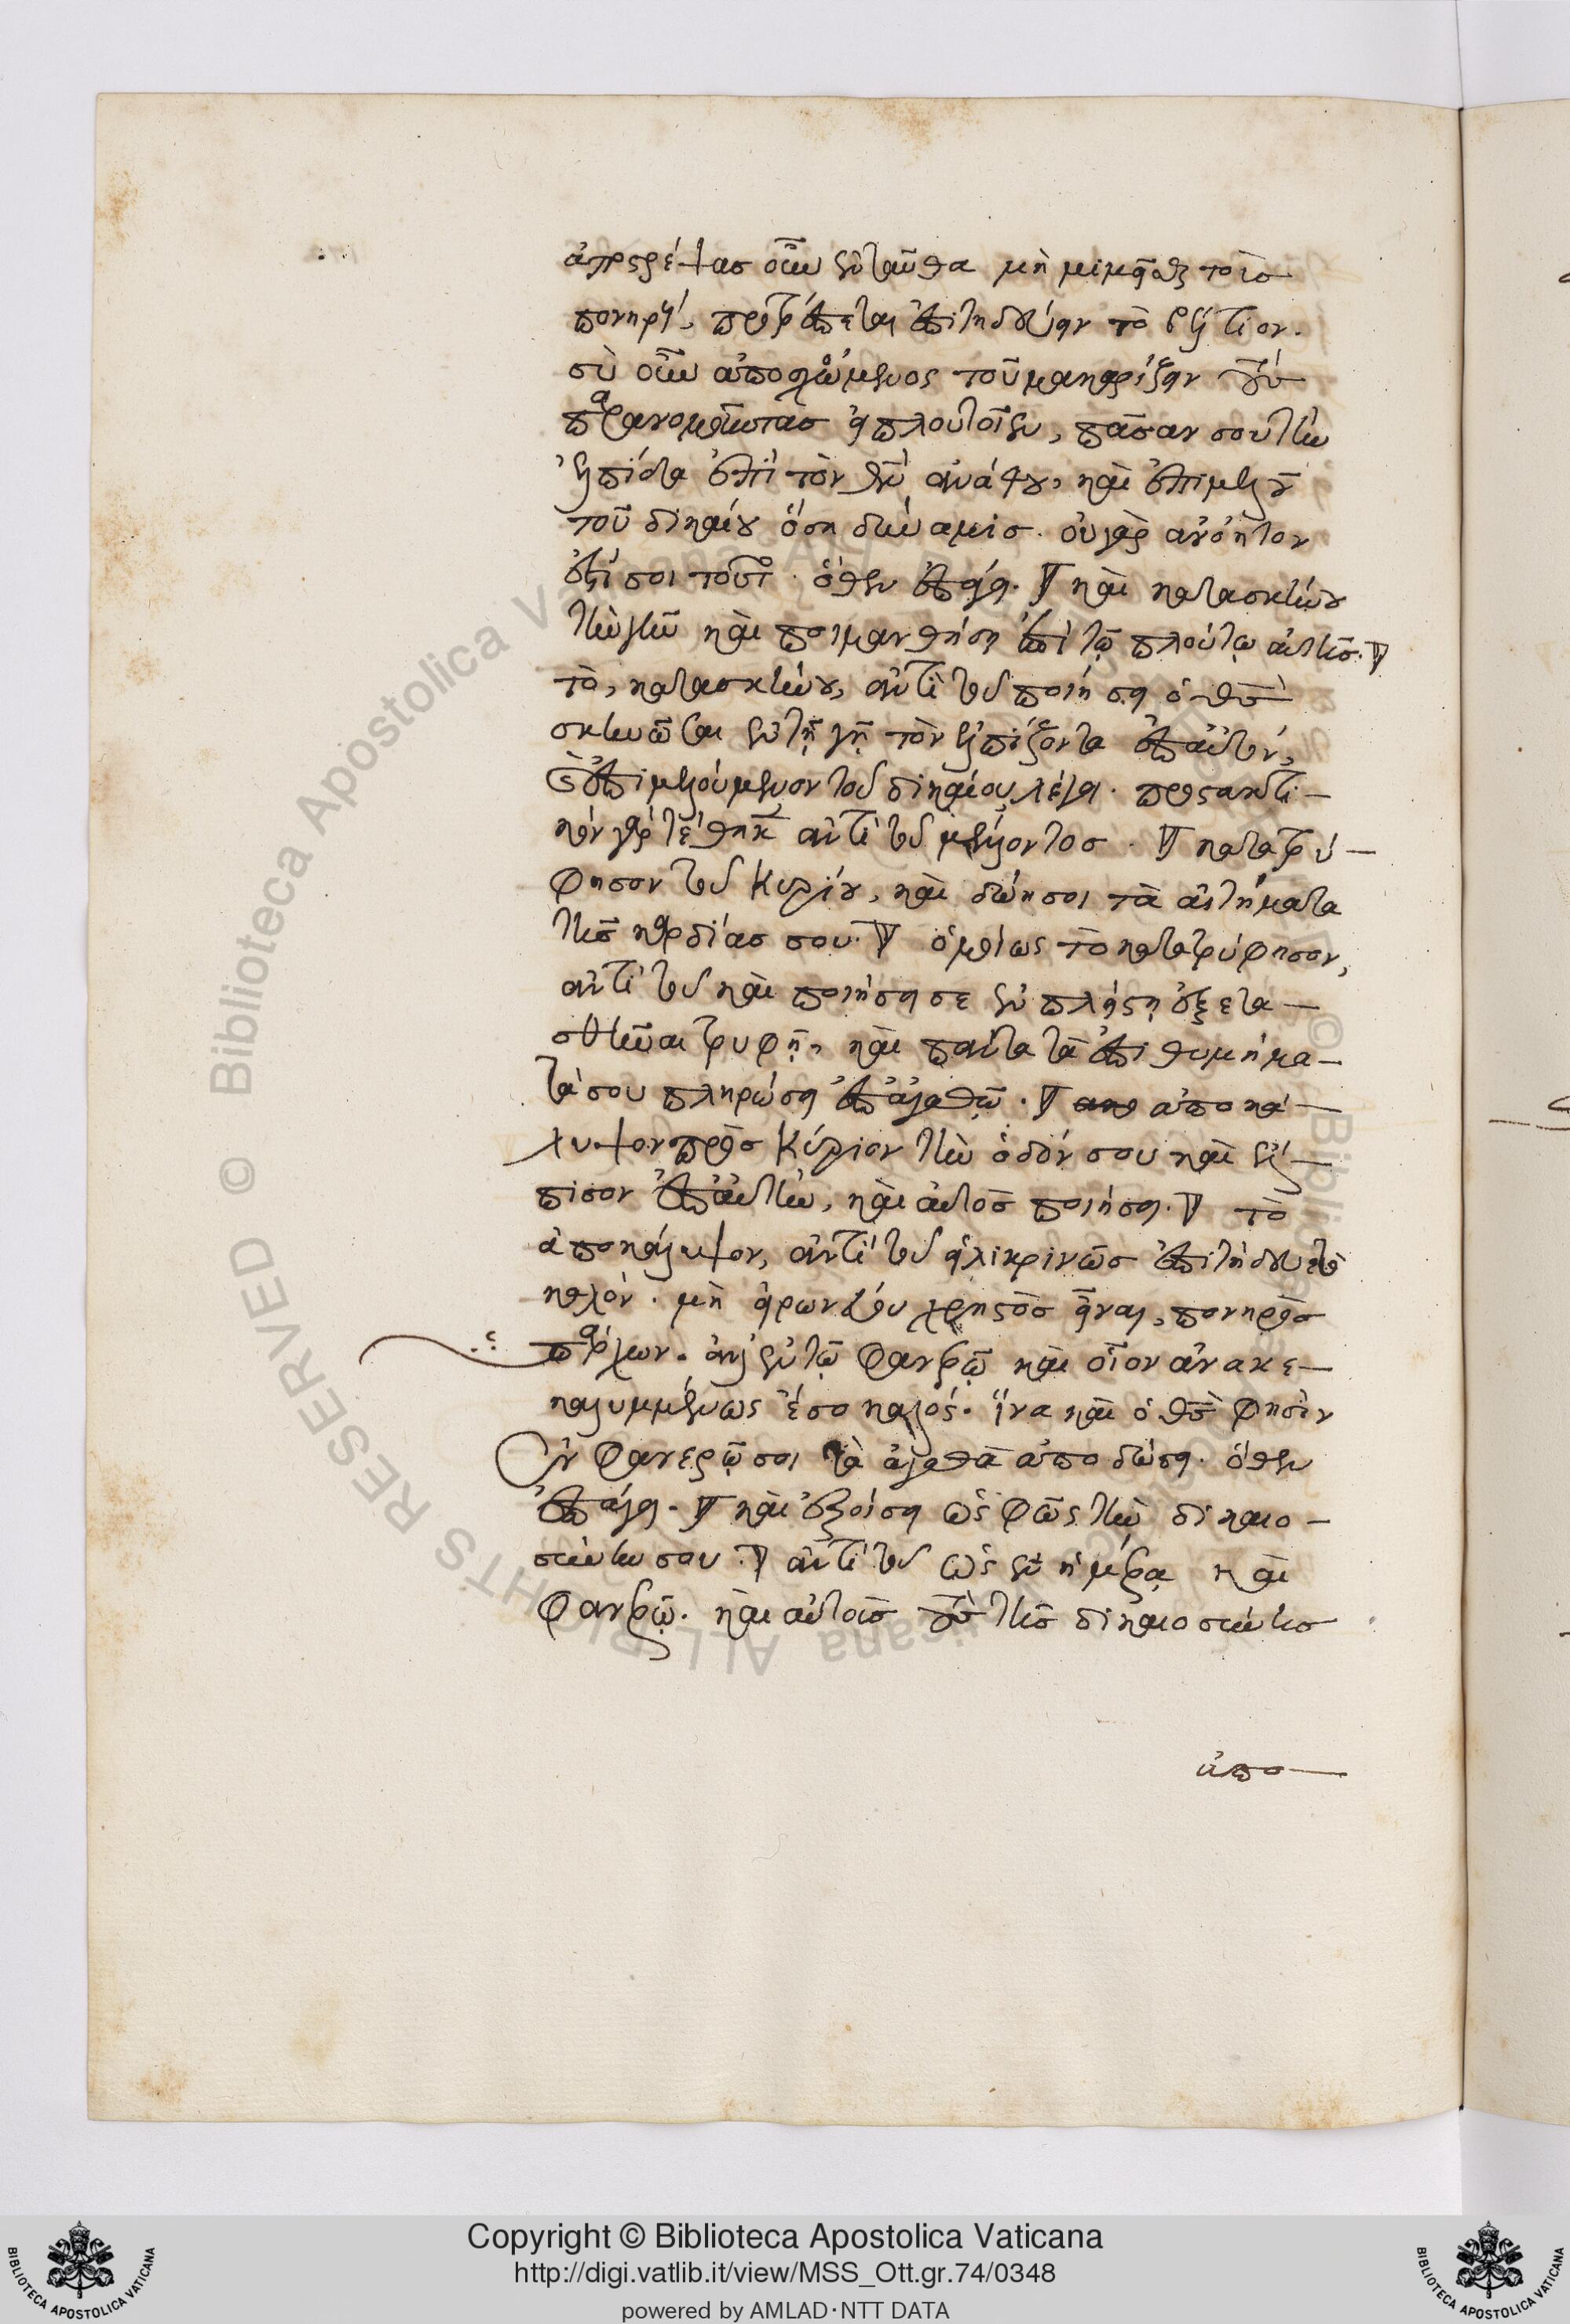 ἀποστρέψας οὖν ἐνταῦθα μὴ μιμεῖσθαι τοῖς
πονηροῖς, προτρέπεται ἐπιτηδεύειν τὸ βέλτιον.
σὺ οὖν ἀποσχόμενος τοῦ μακαρίζειν τοὺς
παρανομοῦντας ἐπὶ πλουτεῖν, πᾶσαν σου τὴν
ἐλπίδα ἐπὶ τὸν θν ἀνάθου, καὶ ἐπιμελοῦ
τοῦ δικαίου ὅση δύναμις. οὐ γὰρ ἀνόητον
ἔσται σοι τοῦτο. ὅθεν ἐπάγει. καὶ κατασκήνου
τὴν γῆν καὶ ποιμανθήσῃ ἐπὶ τῷ πλούτῳ αὐτῆς.
τὸ, κατασκήνου, ἀντὶ τοῦ ποιήσει ὁ θς
σκηνῶσαι ἐν τῇ γῇ τὸν ἐλπίζοντα ἐπ' αὐτὸν,
ἐπιμελούμενον τοῦ δικαίου λέγει. προστακτι-
κὸν γὰρ τέθηκεν ἀντὶ τοῦ μέλλοντος. κατατρύ-
φησον τοῦ Κυρίου, καὶ δώῃ σοι τὰ αἰτήματα
τῆς καρδίας σου. ὁμοίως τὸ κατατρύφησον,
ἀντὶ τοῦ καὶ ποιήσει σε ἐν πλείστῃ ἐξετα-
σθῆναι τρυφῇ, καὶ πάντα τὰ ἐπιθυμήμα-
τά σου πληρώσει ἐπ' ἀγαθῷ. ἀποκά-
λυψον πρὸς Κύριον τὴν ὁδόν σου καὶ ἔλ-
πισον ἐπ' αὐτὸν, καὶ αὐτὸς ποιήσει. τὸ
ἀποκάλυψον, ἀντὶ τοῦ εἰλικρινῶς ἐπιτήδευε τὸ
καλόν. μὴ εἰρωνεύου χρηστὸς εἶναι, πονηρὸς
ὑπάρχων. ἀλλ' ἐν τῷ φανερῷ καὶ οἷον ἀνακε-
καλυμμένως ἔσο καλός. ἵνα καὶ ὁ θς φησὶν
ἐν φανερῷ σοι τὰ ἀγαθὰ ἀποδώσῃ. ὅθεν
ἐπάγει. καὶ ἐξοίσει ὡς φῶς τὴν δικαιο-
σύνην σου. ἀντὶ τοῦ ὡς ἐν ἡμέρᾳ καὶ
φανερῷ. καὶ αὐτοῖς τοὺς τῆς δικαιοσύνης
ἀπο-
Copyright © Biblioteca Apostolica Vaticana
http://digi.vatlib.it/view/MSS_Ott.gr.74/0348
powered by AMLAD·NTT DATA
BIBLIOTECA APOSTOLICA VATICANA
BIBLIOTECA APOSTOLICA VATICANA